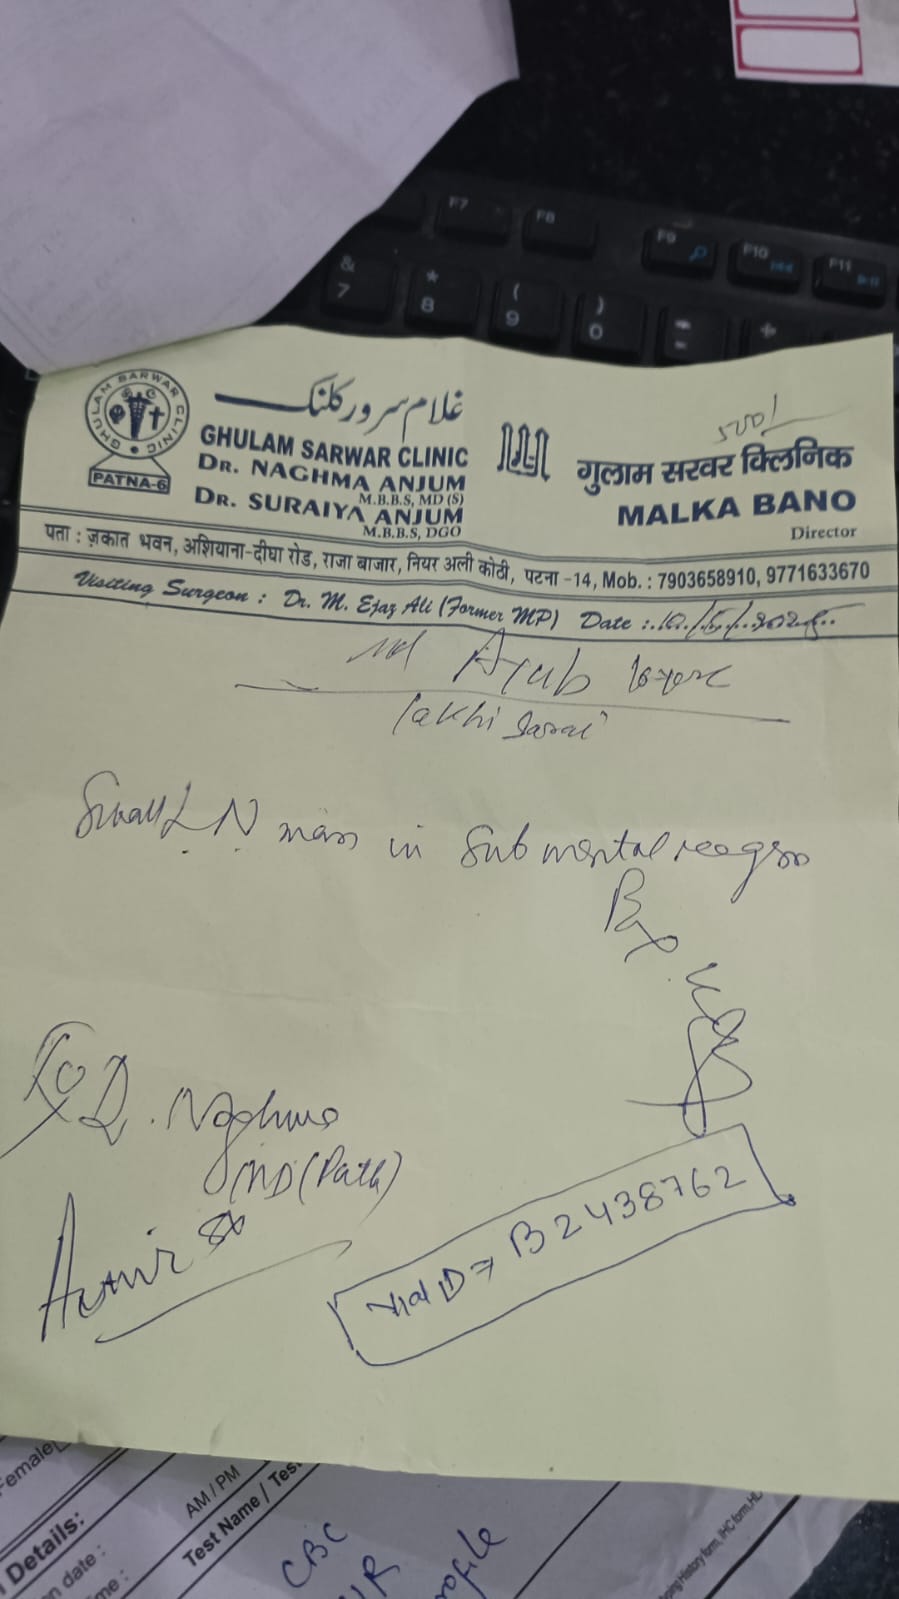 F7 F8 F9 F10 F11
& 7 * 8 ( 9 ) 0 - +
GHULAM SARWAR CLINIC
PATNA-6
غلام سرور کلنک
GHULAM SARWAR CLINIC
DR. NAGHMA ANJUM
M.B.B.S, MD (S)
DR. SURAIYA ANJUM
M.B.B.S, DGO
500/
गुलाम सरवर क्लिनिक
MALKA BANO
Director
पता : ज़कात भवन, अशियाना-दीघा रोड, राजा बाजार, नियर अली कोठी, पटना -14, Mob. : 7903658910, 9771633670
Visiting Surgeon : Dr. M. Ejaz Ali (Former MP) Date :
Md Ayub
lakhi sarai
Small LN mass in Sub mental
Bx
Dr. Naghma
MD (Path)
Vial ID B2438762
Female
Details:
on date :
me :
AM / PM
Test Name / Tes
CBC
rofile
History form, IHC form,